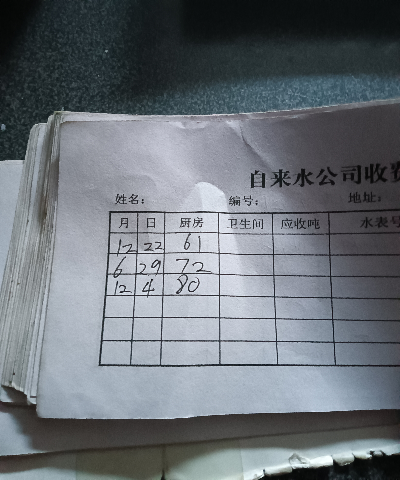 自来水公司收费
姓名： 编号： 地址：
月 日 厨房 卫生间 应收吨 水表号
12 22 61
6 29 72
12 4 80